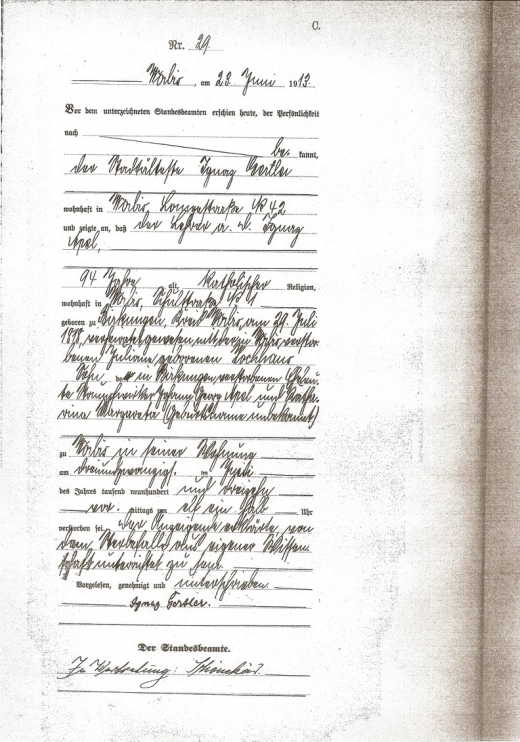 C.
Nr. 29
Worbis, am 23. Juni 1913.
Vor dem unterzeichneten Standesbeamten erschien heute, der Persönlichkeit
nach
be- kannt,
der Stadtälteste Ignaz Gertler
wohnhaft in Worbis, Langestraße № 42
und zeigte an, daß der Lehrer a. D. Ignaz
Apel,
94 Jahre alt, katholischer Religion,
wohnhaft in Worbis, Schulstraße №
geboren zu Birkungen, Kreis Worbis, am 29. Juli
1818, verheiratet gewesen mit der zu Worbis verstor-
benen Juliane geborenen
Sohn der in Birkungen verstorbenen Eheleu-
te Johann Georg Apel und Katha-
rina Margareta (Geburtsname unbekannt)
zu Worbis in seiner Wohnung
am dreiundzwanzigst. Juni
des Jahres tausend neunhundert und dreizehn
vor- mittags um elf ein halb Uhr
verstorben sei. Der Anzeigende erklärte, von
dem Sterbefalle aus eigener Wissen-
schaft unterrichtet zu sein.
Vorgelesen, genehmigt und unterschrieben
Ignaz Gertler.
Der Standesbeamte.
In Vertretung: